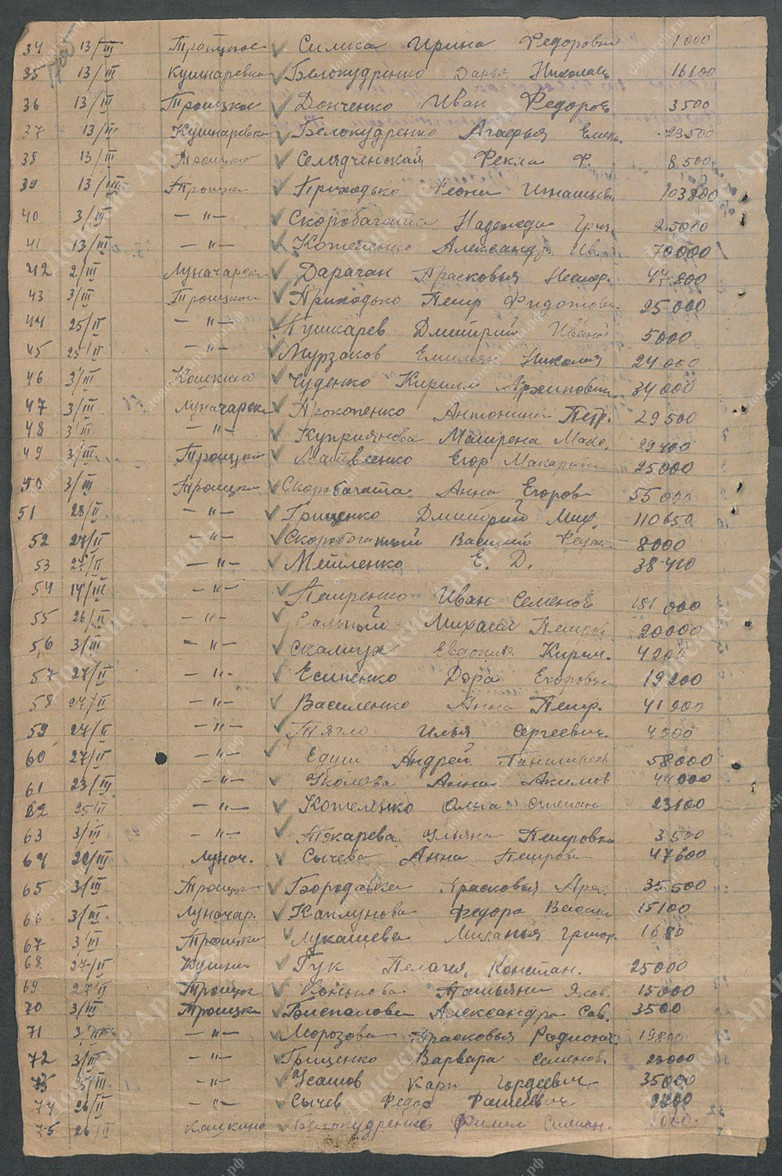 34 13/III Троицкое Силка Ирина Федоровн 1000
35 13/III Кушнаревка Белокудренко Дарья Николаев 16100
36 13/III Троицкое Донченко Иван Федоров 3500
37 13/III Кушнаревка Белокудренко Агафья Емел. 23500
38 13/III Троицкое Фекла Ф. 8500
39 13/III Троицкое Приходько Игнатьев 103800
40 3/III —"— Скоробагата Надежда Григ 25000
41 13/III —"— Александр Ив 70000
42 2/III Луначарск Дарачан Прасковья
43 3/III Троицкое Приходько Петр 25000
44 25/II —"— Пушкарев Дмитрий Иванов 5000
45 25/II —"— Мурзаков Емильян Николая 24000
46 3/III Чуденко Кирилл Архипович 34000
47 3/III Луначарск Прокопенко Антонина Петр. 29500
48 3/III —"— Куприянова Матрена Мак. 29400
49 3/III Троицкой Матвеенко Егор Макаров 25000
50 3/III Троицкое Скоробагата Анна Егоров 55000
51 23/II —"— Грищенко Дмитрий Мих. 110650
52 27/II —"— Скоробогатый Василий Федо 8000
53 27/II —"— Мейленко Е. Д. 38400
54 14/III —"— Петренко Иван Семенов 181000
55 26/II —"— Сальный Михаил Петров 20000
56 3/III —"— Евдокия Кирил. 4200
57 27/II —"— Есипенко Дора Егоровн 19200
58 27/II —"— Василенко Анна Петр. 41200
59 27/II —"— Тягло Илья Сергеевич 4000
60 27/II —"— Едуш Андрей 58000
61 23/III —"— Уколова Анна Акимов 44000
62 25/II —"— Котеленко Ольга Степан 23100
63 3/III —"— Токарева Ульяна Петровна 3500
64 22/III Лунач. Сычева Анна Петров 47600
65 3/III Троицк Бородавка Прасковья 35500
66 3/III Луначар. Каплунова Федора Васил 15100
67 3/III Троицк Лукашева Григор 1680
68 27/II Кушна Гук Пелагея Констан. 25000
69 27/II Троицк Конькова Татьяна Яков. 15000
70 3/III Троицк Александра Сав. 3500
71 3/III —"— Морозова Прасковья Родионов 19800
72 3/III —"— Грищенко Варвара Семенов 23000
73 5/III —"— Усатов Карп Гордеевич 35000
74 26/II —"— Сычев Федор
75 26/II Белокудренко Филип 2000